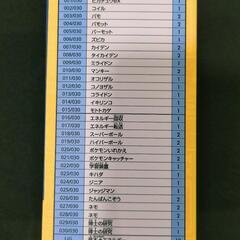 001/030 ピカチュウex 1
002/030 コイル 2
003/030 パモ 2
004/030 パモット 2
005/030 パーモット 1
006/030 ズピカ 1
007/030 カイデン 2
008/030 タイカイデン 2
009/030 ミライドン 1
010/030 マンキー 2
011/030 オコリザル 1
012/030 コノヨザル 1
013/030 コライドン 1
014/030 イキリンコ 1
015/030 モトトカゲ 1
016/030 エネルギー回収 1
017/030 エネルギー転送 1
018/030 スーパーボール 2
019/030 ハイパーボール 2
020/030 ポケモンいれかえ 2
021/030 ポケモンキャッチャー 2
022/030 学習装置 1
023/030 キハダ 1
024/030 ジニア 1
025/030 ジャッジマン 1
026/030 たんぱんこぞう 2
027/030 ネモ 2
028/030 ネモ 2
029/030 博士の研究 1
030/030 博士の研究 1